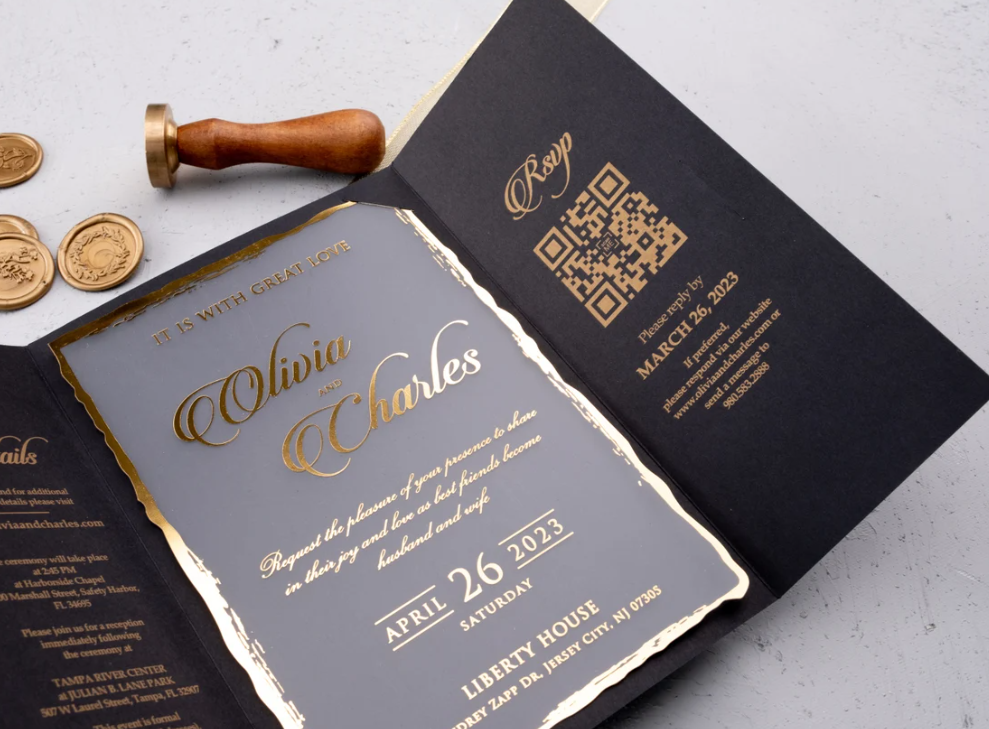 ails
nd for additional
details please visit
liviaandcharles.com
ceremony will take place
at 2:45 PM
at Harborside Chapel
Marshall Street, Safety Harbor,
FL 34695
Please join us for a reception
immediately following
the ceremony at
TAMPA RIVER CENTER
at JULIAN B. LANE PARK
507 W Laurel Street, Tampa, FL 32907
This event is formal
IT IS WITH GREAT LOVE
Olivia
AND
Charles
Request the pleasure of your presence to share
in their joy and love as best friends become
husband and wife
APRIL 26 2023
SATURDAY
LIBERTY HOUSE
DREY ZAPP DR, JERSEY CITY, NJ 07305
Rsvp
Please reply by
MARCH 26, 2023
If preferred,
please respond via our website
www.oliviaandcharles.com or
send a message to
980.583.2888